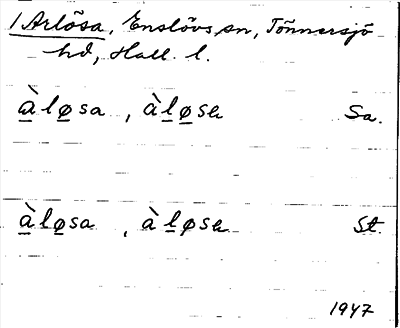 1 Arlösa, Enslövs sn, Tönnersjö
hd, Hall. l.
àløsa, àløsa Sa.
àløsa, àløsa St.
1947